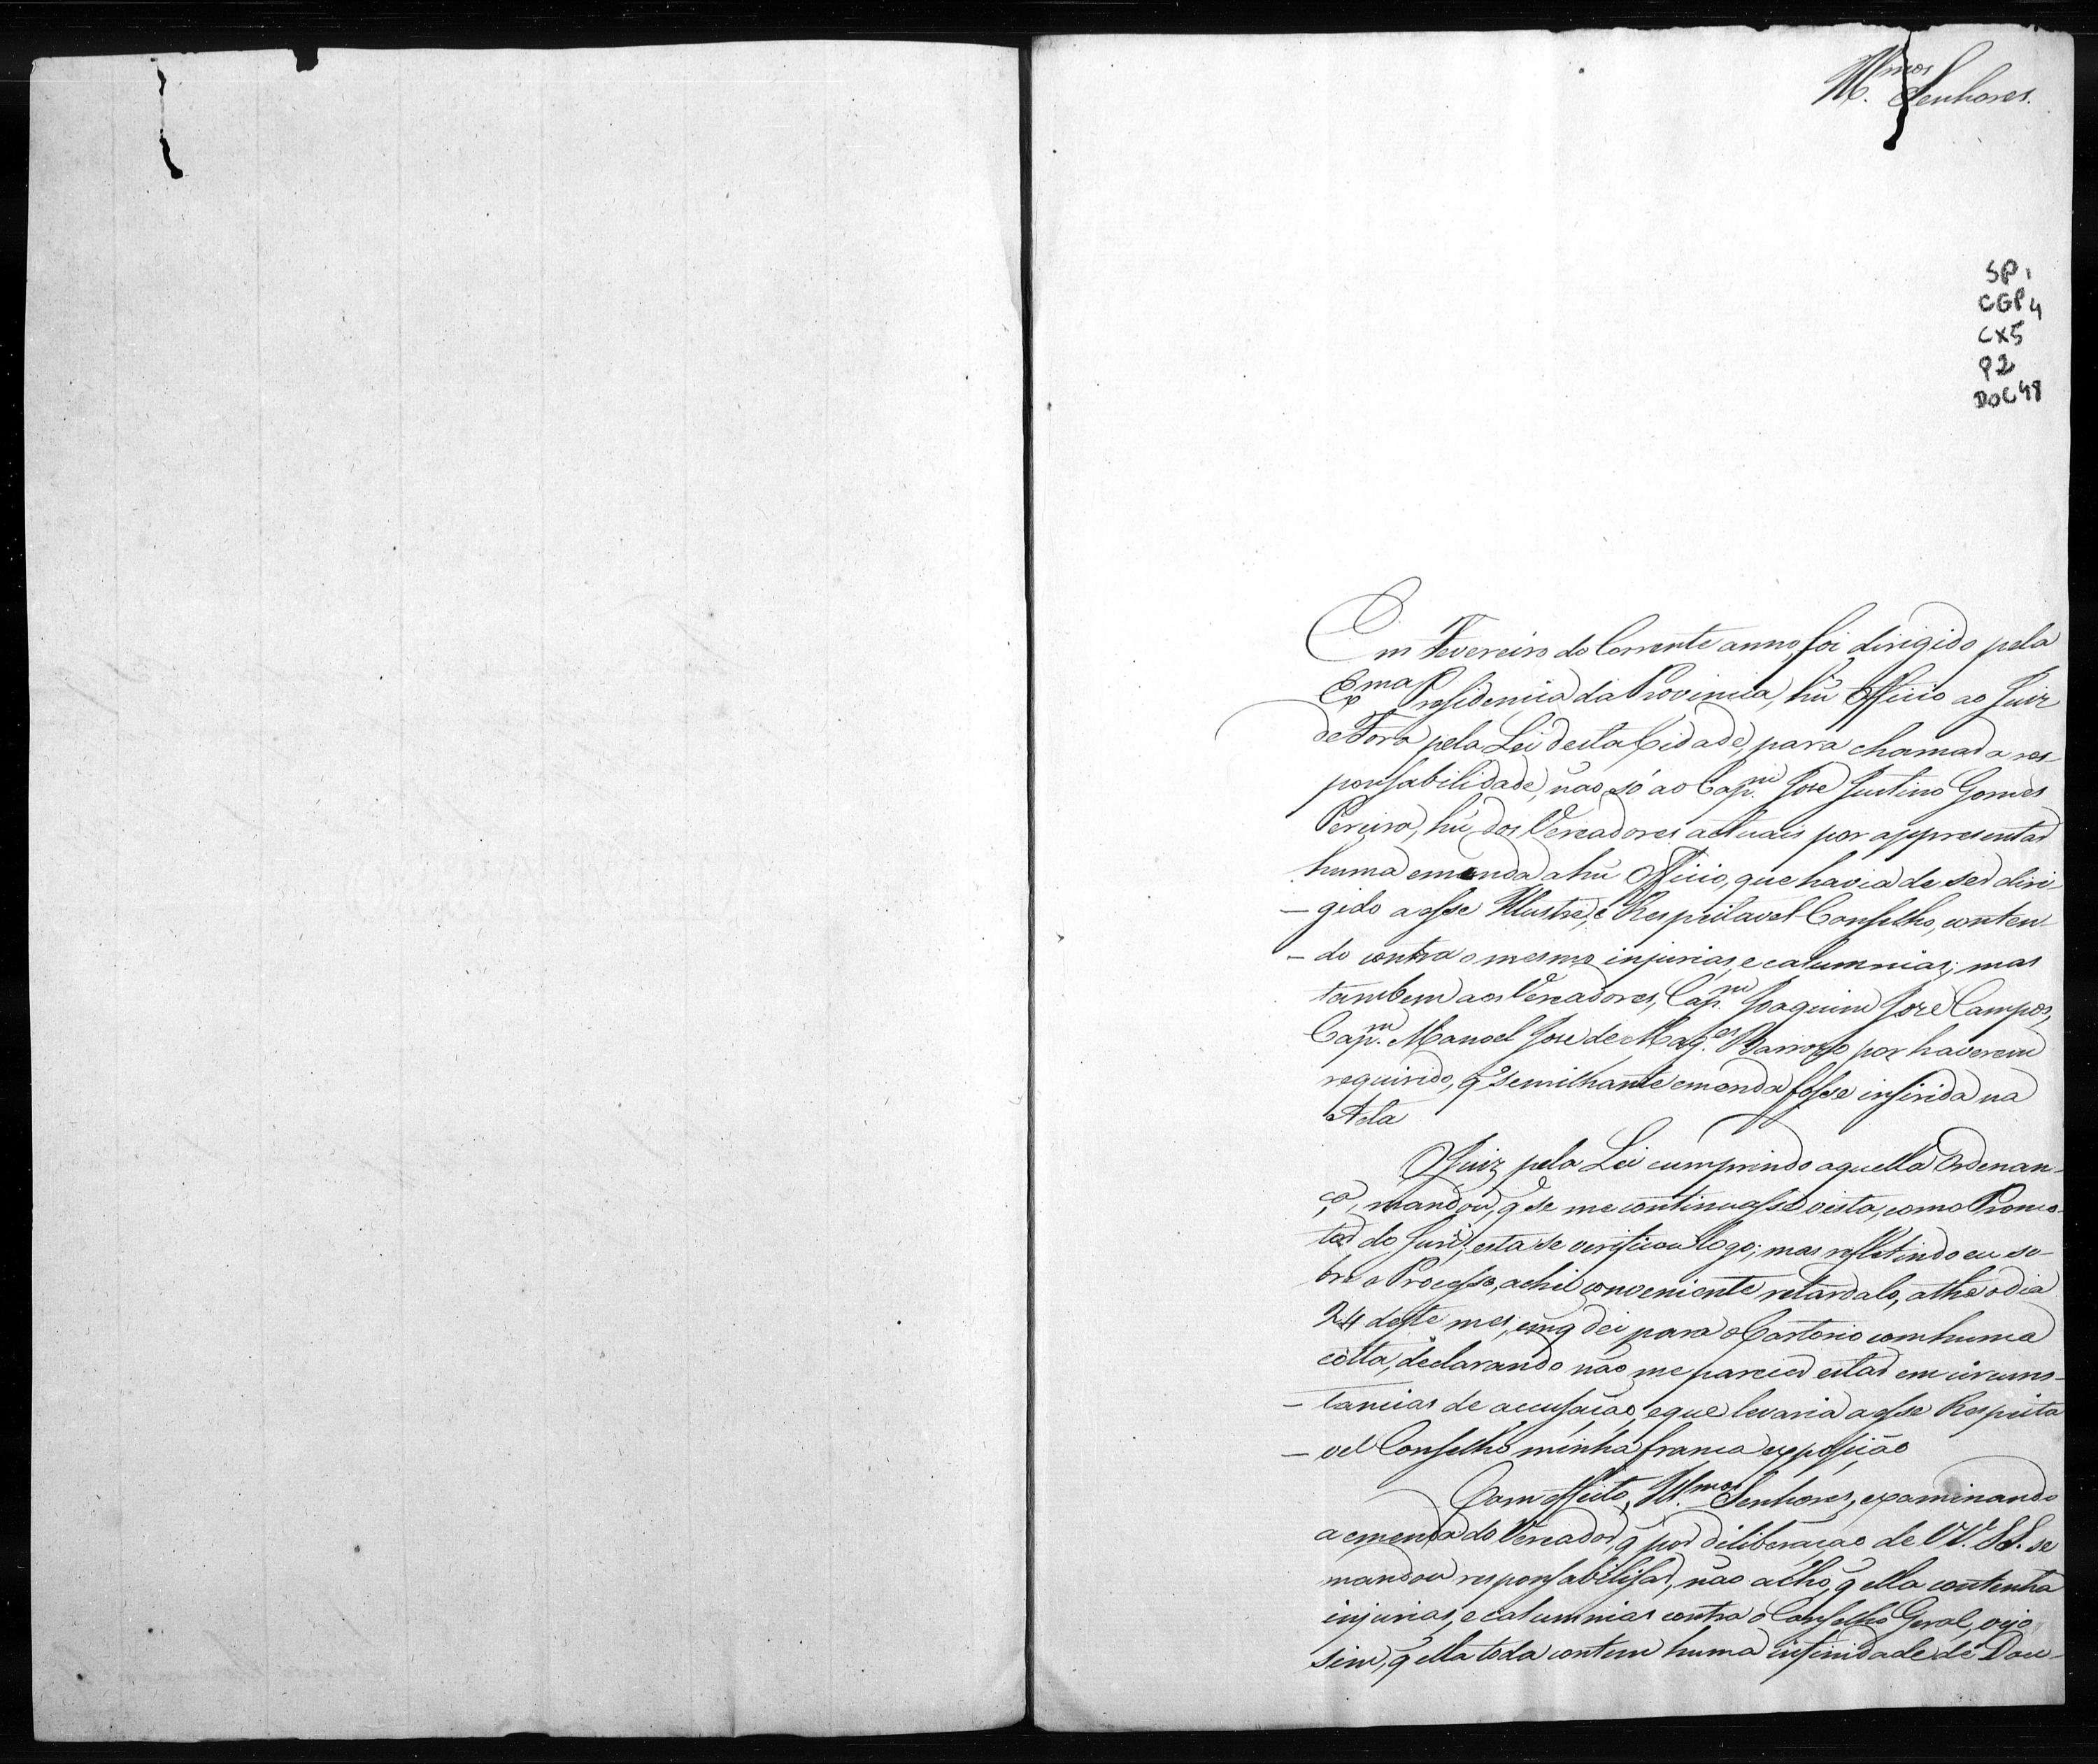 Ill.mos Senhores.
SP1
CGP4
CX5
P2
DOC48
Em Fevereiro do Corrente anno, foi dirigido pela
Exma Presidencia da Provincia, hũ Officio ao Juiz
de Fora pela Lei desta Cidade, para chamar a res-
ponsabilidade, não só ao Cap.m Jose Justino Gomes
Pereira, hũ dos Vereadores actuais por appresentar
huma emenda a hũ Officio, que havia de ser diri-
- gido a esse Illustre, e Respeitavel Conselho, conten-
- do contra o mesmo injurias, e calumnias; mas
tambem aos Vereadores, Cap.m Joaquim José Campos,
Cap.m Manoel Jose de Mag.es Barrozo por haverem
requirido, q̃ semilhante emenda fosse insirida na
Acta
O Juiz pela Lei cumprindo aquella Ordenan-
ça, mandou, q̃ se me continuasse vista, como Promo-
tor do Juri; esta se verificou logo; mas refletindo eu so-
bre o Processo, achei conveniente retardalo, athe o dia
24 deste mes, em q̃ dei para o Cartorio com huma
cótta, declarando não me parecer estar em circuns-
- tancias de accusação, e que levaria a esse Respeita
- vel Conselho minha franca exposição
Com effeito, Ill.mos Senhores, examinando
a emenda do Vereador, q̃ por diliberação de VV. SS. se
mandou responsabilisar, não acho, q̃ ella contenha
injurias, e calumnias contra o Conselho Geral, vejo
sim, q̃ ella toda contem huma infinidade de Dou-